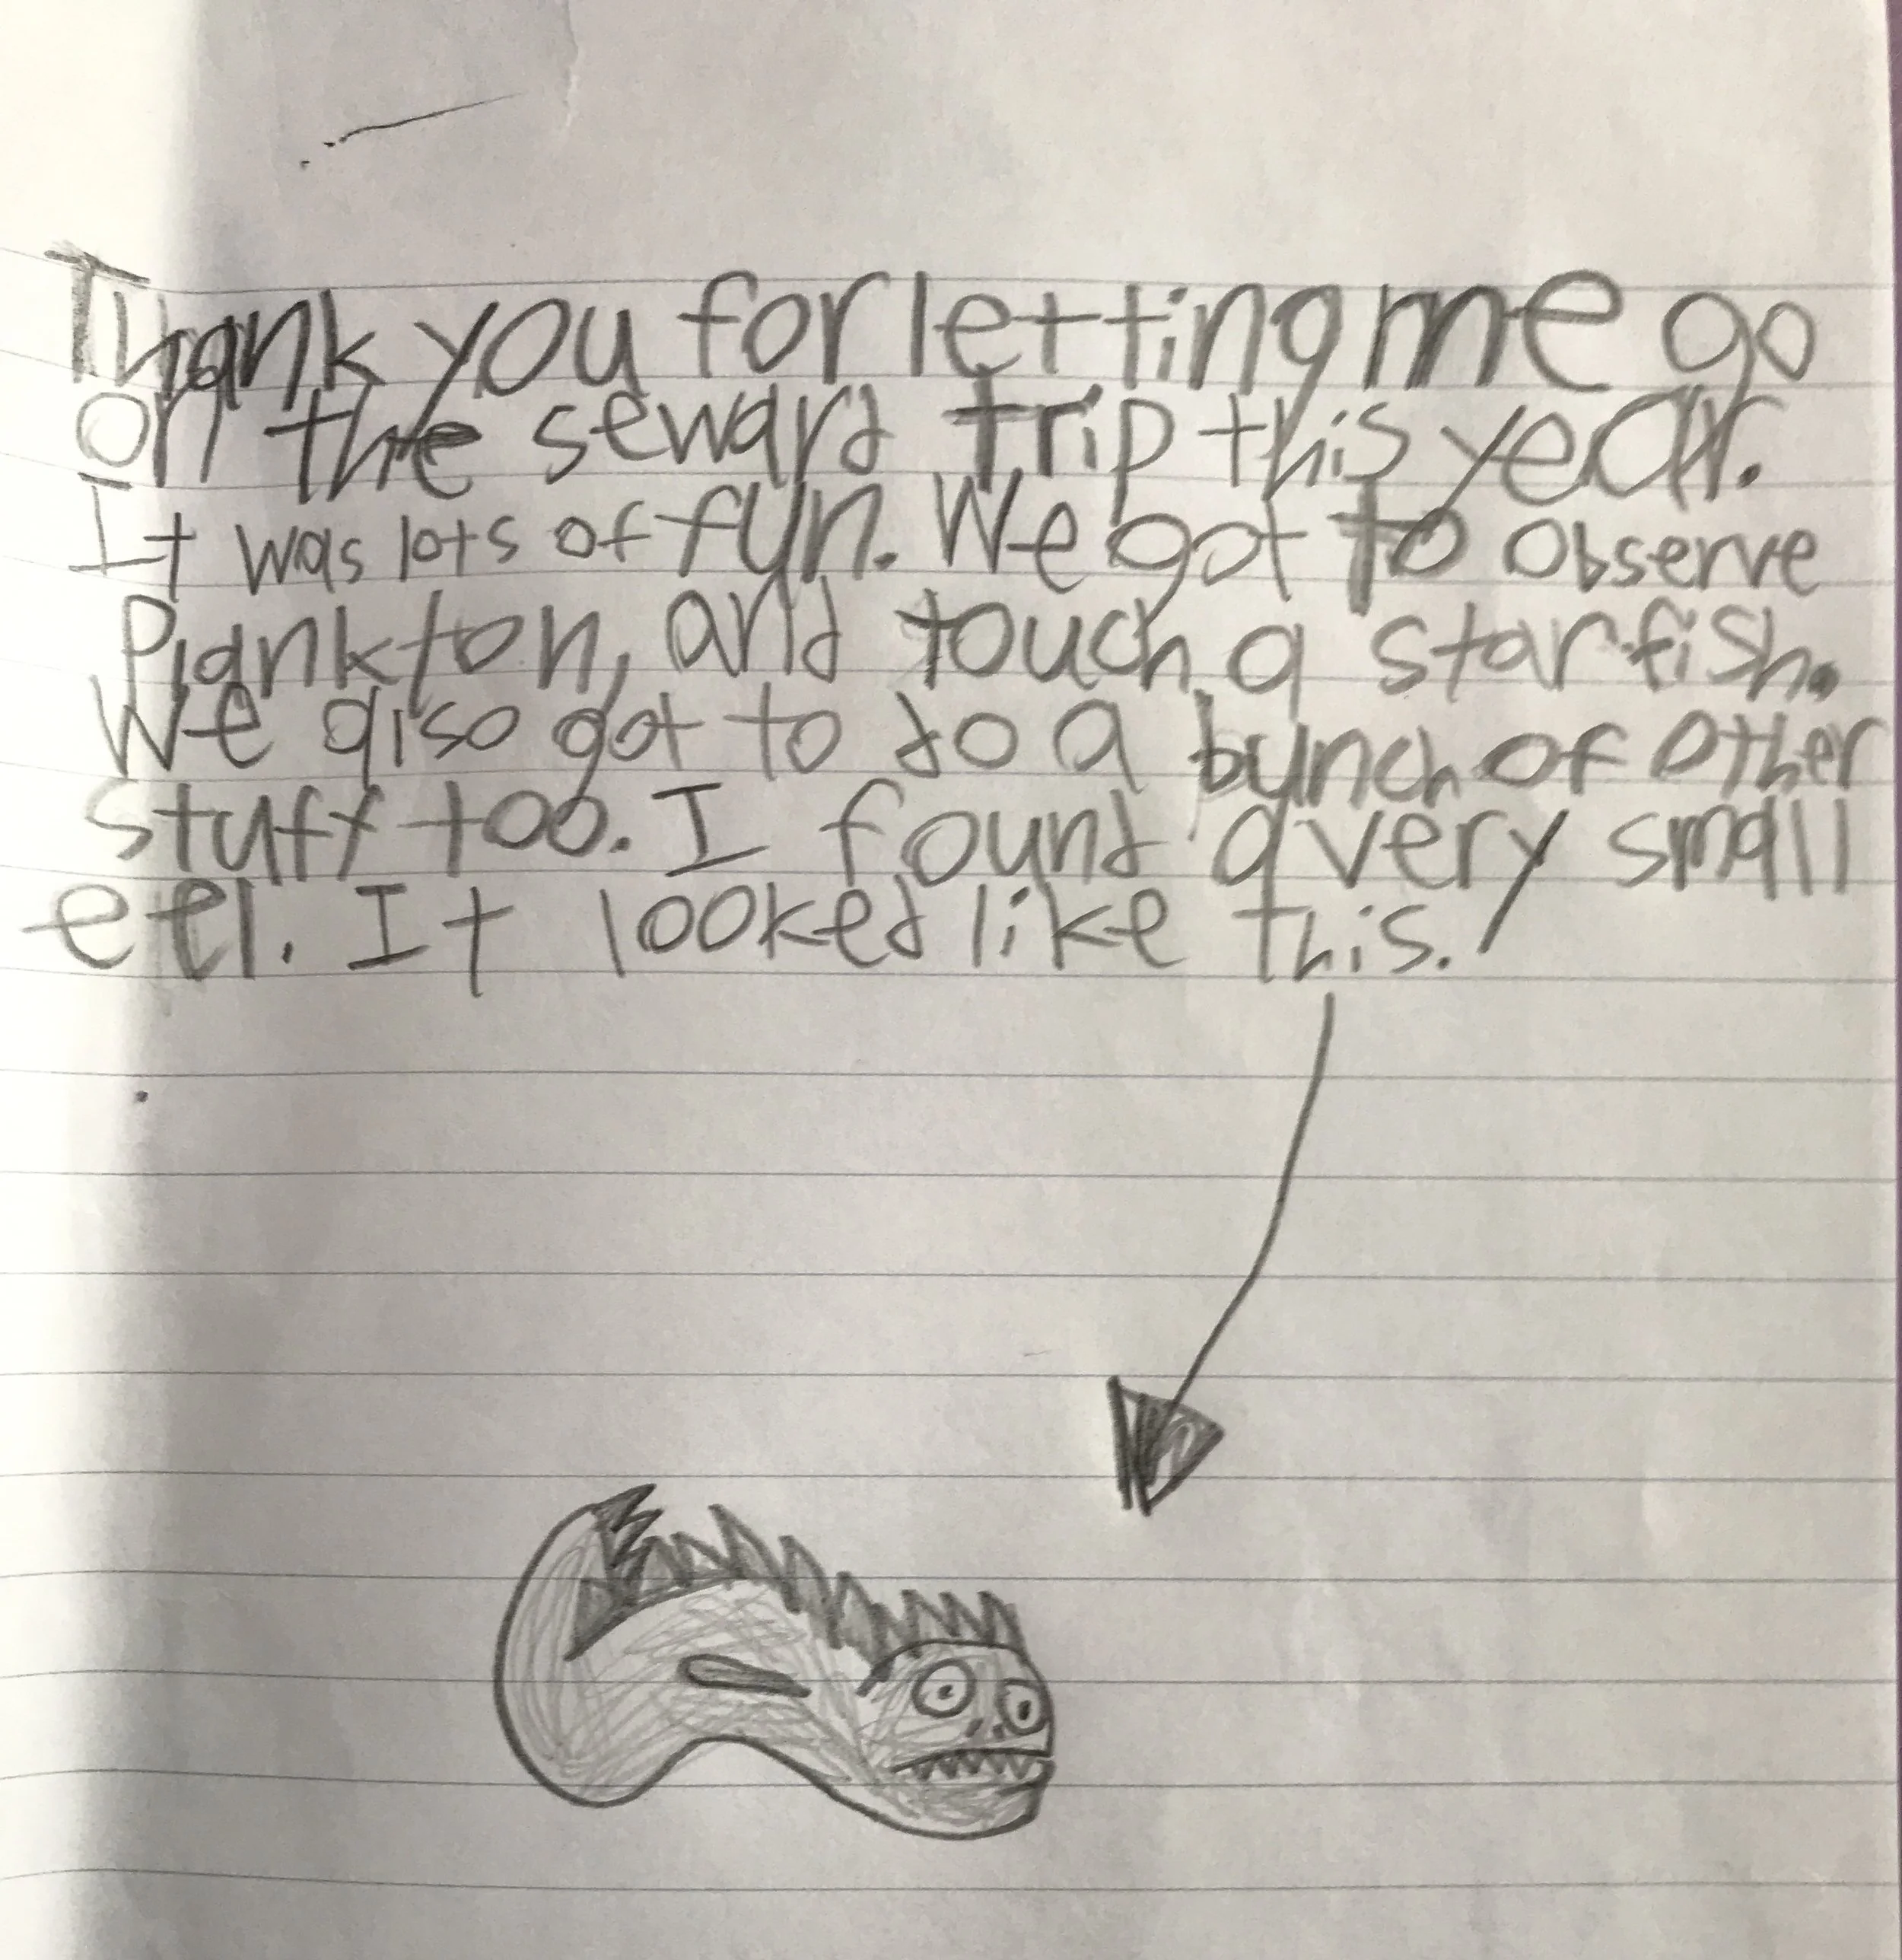 Thank you for letting me go
on the seward trip this year.
It was lots of fun. We got to observe
Plankton, and touch a starfish.
We also got to do a bunch of other
stuff too. I found a very small
eel. It looked like this.